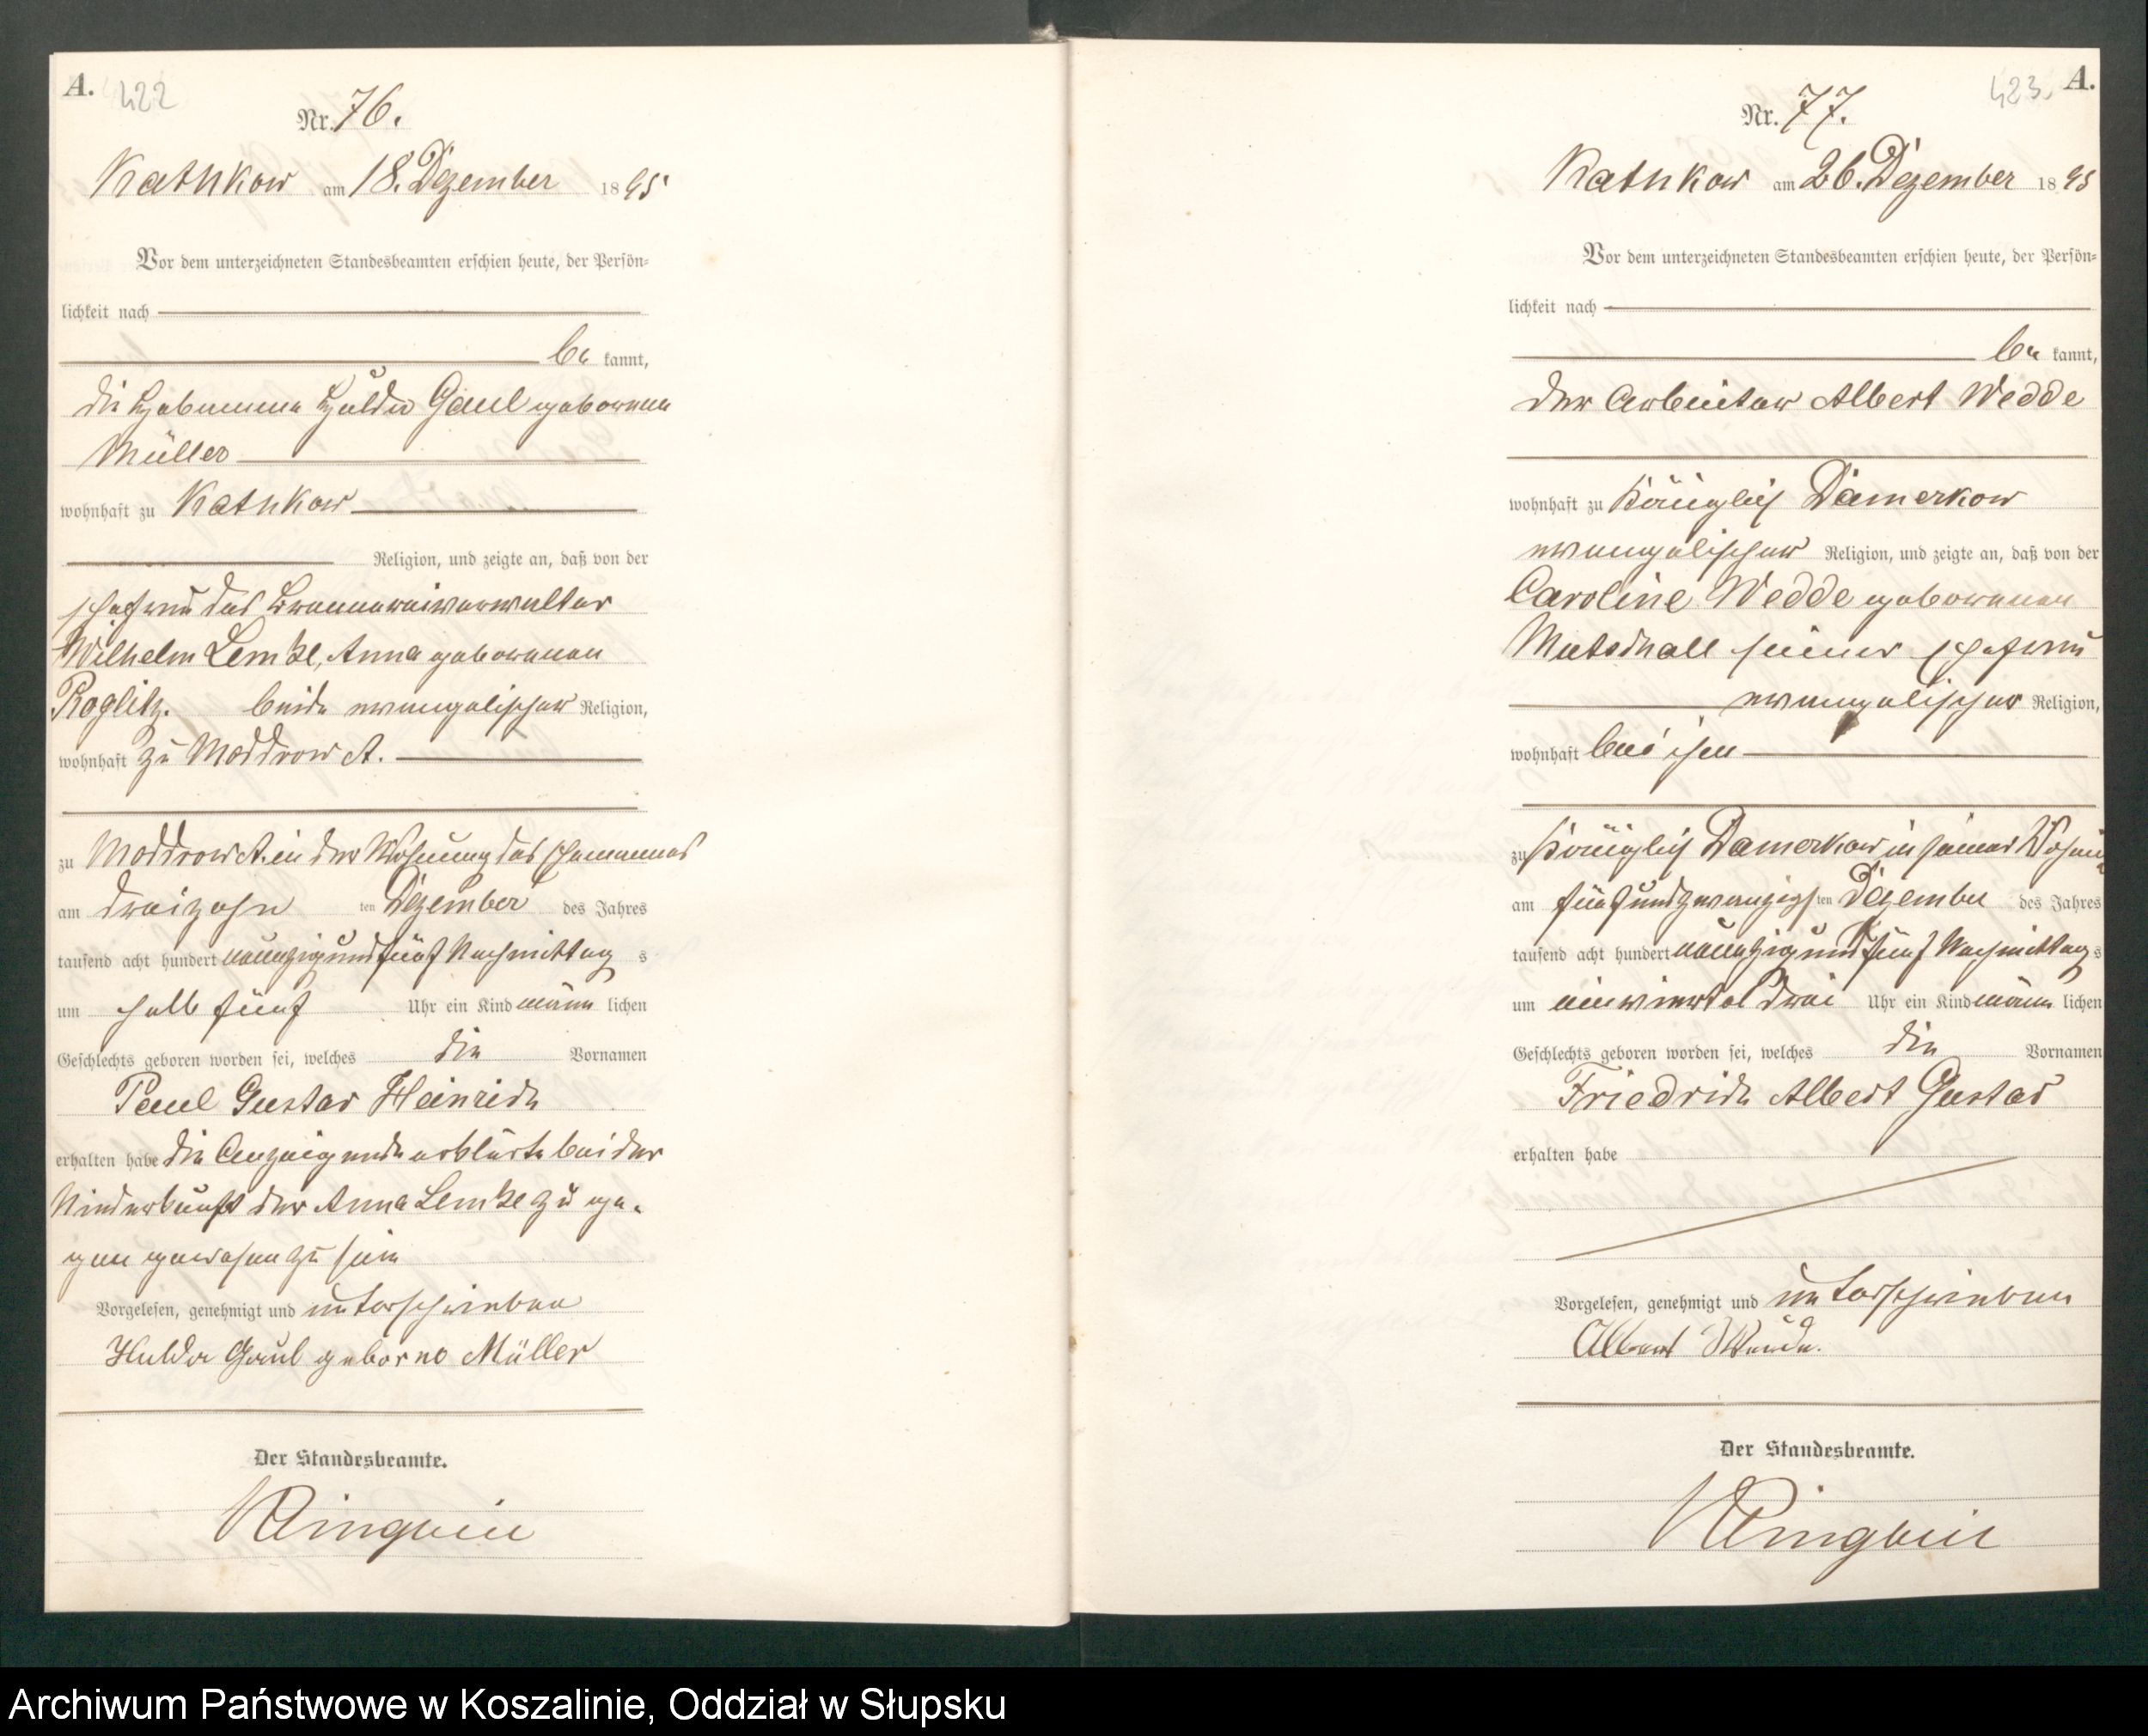 A.
422
Nr. 76.
Kathkow am 18. Dezember 1895
Vor dem unterzeichneten Standesbeamten erschien heute, der Persön-
lichkeit nach
be kannt,
die Hebamme Hulda Gaul geborene
Müller
wohnhaft zu Kathkow
Religion, und zeigte an, daß von der
Ehefrau des Brennereiverwalter
Wilhelm Lemke, Anna geborenen
Roglitz. beide evangelischer Religion,
wohnhaft zu Moddrow A.
zu Moddrow A. in der Wohnung des Ehemannes
am dreizehn ten Dezember des Jahres
tausend acht hundert neunzig und fünf Nachmittag s
um halb fünf Uhr ein Kind männ lichen
Geschlechts geboren worden sei, welches die Vornamen
Paul Gustav Heinrich
erhalten habe die Anzeigende erklärte bei der
Niederkunft der Anna Lemke zu ge-
gen gewesen zu sein
Vorgelesen, genehmigt und unterschrieben
Hulda Gaul geborne Müller
Der Standesbeamte.
423.
A.
Nr. 77.
Kathkow am 26. Dezember 1895
Vor dem unterzeichneten Standesbeamten erschien heute, der Persön-
lichkeit nach
be kannt,
der Arbeiter Albert Wedde
wohnhaft zu Königlich Damerkow
evangelischer Religion, und zeigte an, daß von der
Caroline Wedde geborenen
seiner Ehefrau
evangelischer Religion,
wohnhaft bei ihm
zu Königlich Damerkow in seiner Wohnung
am fünfundzwanzigs ten Dezember des Jahres
tausend acht hundert neunzig und fünf Nachmittag s
um einviertel drei Uhr ein Kind männ lichen
Geschlechts geboren worden sei, welches die Vornamen
Friedrich Albert Gustav
erhalten habe
Vorgelesen, genehmigt und unterschrieben
Albert Wedde.
Der Standesbeamte.
Archiwum Państwowe w Koszalinie, Oddział w Słupsku